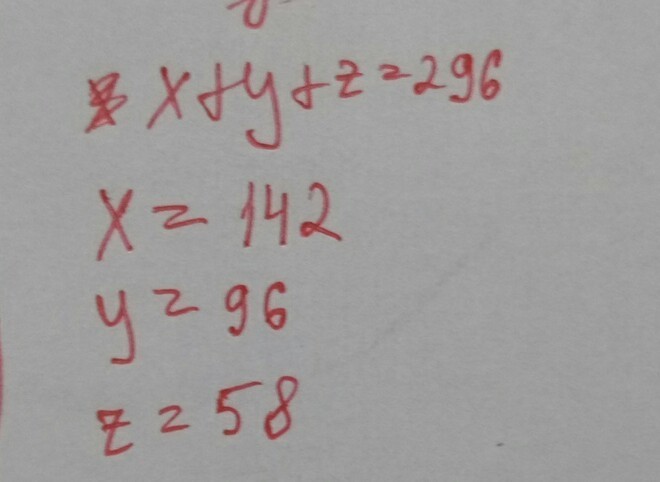 x+y+z=296
x=142
y=96
z=58